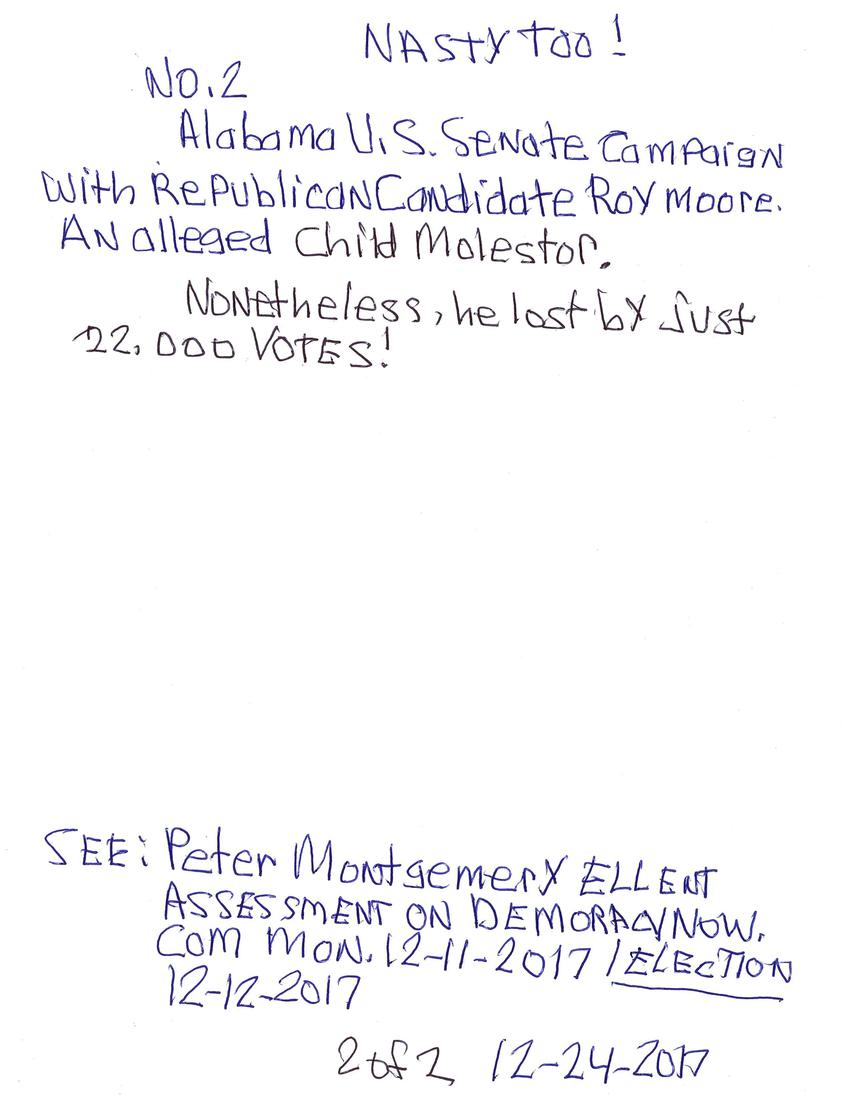 NASTY TOO!
NO.2
Alabama U.S. Senate Campaign
with Republican Candidate Roy Moore.
An alleged Child Molestor.
Nonetheless, he lost by Just
22,000 VOTES!
SEE: Peter Montgemery ELLENT
ASSESSMENT ON DEMORACYNOW.
COM MON. 12-11-2017 / ELECTION
12-12-2017
2 of 2 12-24-2017